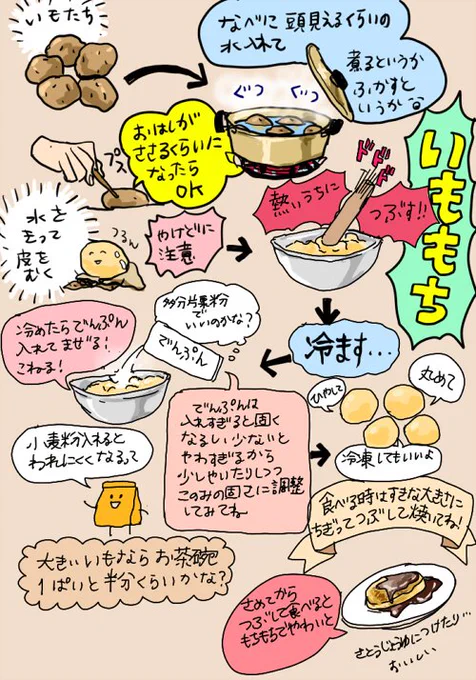 いもたち
なべに頭見えるくらいの
水入れて
煮るというか
ふかすと
いうか
ぐつ ぐつ
おはしが
ささるくらいに
なったら
OK
プス
いももち
ドドド
熱いうちに
つぶす!!
水を
もって
皮を
むく
つるん
やけどに
注意
冷ます…
多分片栗粉
でいいのかな?
でんぷん
冷めたらでんぷん
入れてまぜる!
こねる!
小麦粉入れると
われにくくなるって
でんぷんは
入れすぎると固く
なるしい少ないと
やわすぎるから
少しやいたりしつつ
このみの固さに調整
してみてね
ひやして
丸めて
冷凍してもいいよ
食べる時はすきな大きさに
ちぎってつぶして焼いてね!
大きいいもなら お茶碗
1ぱいと半分くらいかな?
さめてから
つぶして食べると
もちもちでやわいと
さとうじょうゆにつけたり…
おいしい